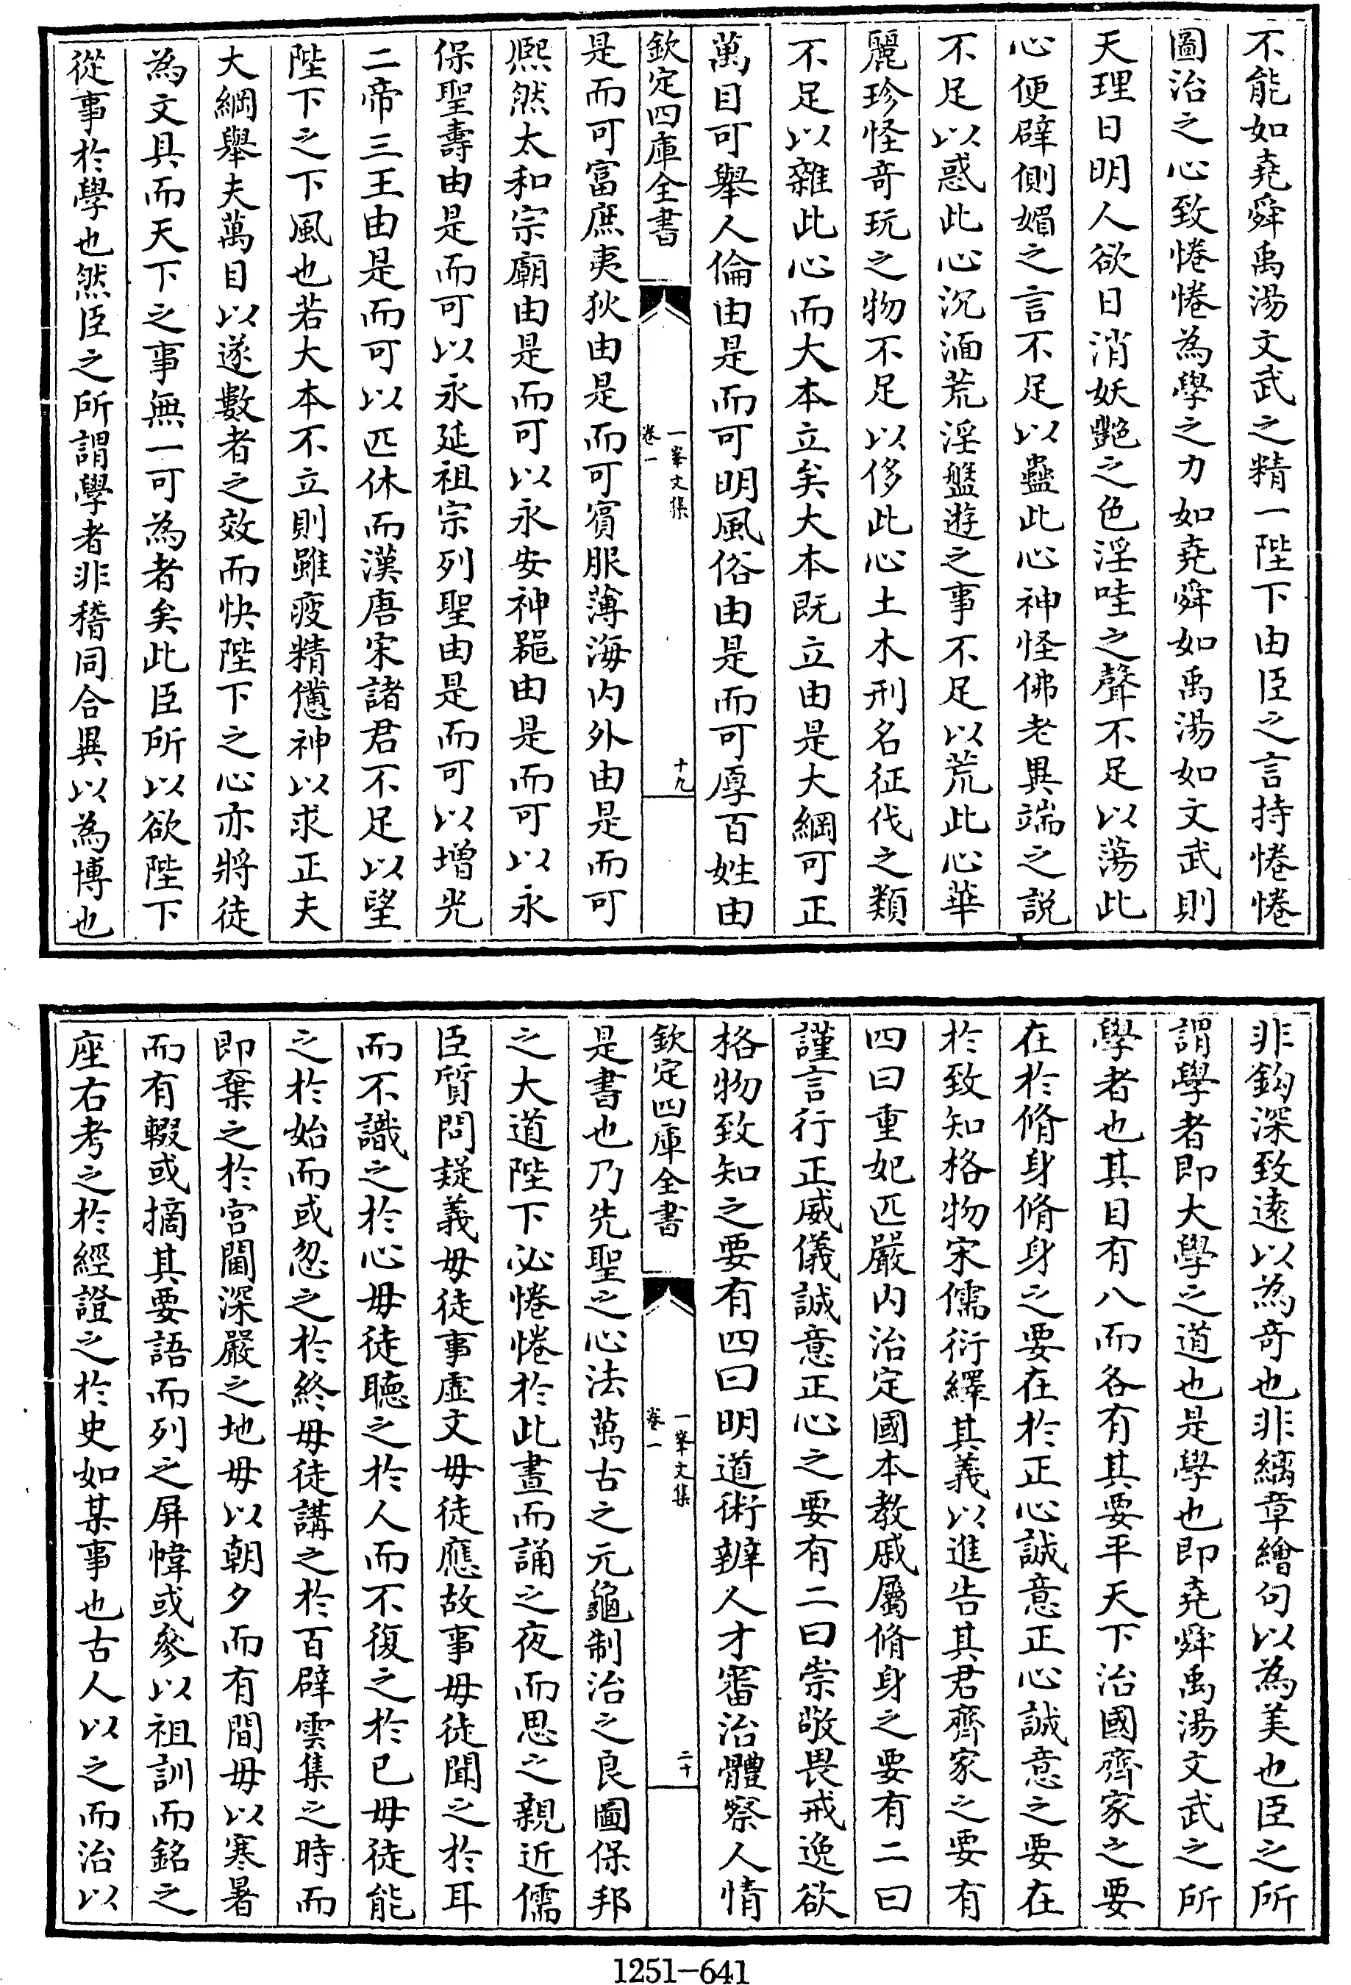 不能如堯舜禹湯文武之精一陛下由臣之言持惓惓
圖治之心致惓惓為學之力如堯舜如禹湯如文武則
天理日明人欲日消妖艷之色淫哇之聲不足以蕩此
心便辟側媚之言不足以蠱此心神怪佛老異端之説
不足以惑此心沉湎荒淫盤遊之事不足以荒此心華
麗珍怪奇玩之物不足以侈此心土木刑名征伐之類
不足以雜此心而大本立矣大本既立由是大綱可正
萬目可舉人倫由是而可明風俗由是而可厚百姓由
欽定四庫全書
一峯文集
卷一
十九
是而可富庶夷狄由是而可賓服薄海内外由是而可
熈然太和宗廟由是而可以永安神器由是而可以永
保聖壽由是而可以永延祖宗列聖由是而可以增光
二帝三王由是而可以匹休而漢唐宋諸君不足以望
陛下之下風也若大本不立則雖疲精憊神以求正夫
大綱舉夫萬目以遂數者之效而快陛下之心亦將徒
為文具而天下之事無一可為者矣此臣所以欲陛下
從事於學也然臣之所謂學者非稽同合異以為博也
非鈎深致逺以為奇也非繡章繪句以為美也臣之所
謂學者即大學之道也是學也即堯舜禹湯文武之所
學者也其目有八而各有其要平天下治國齊家之要
在於脩身脩身之要在於正心誠意正心誠意之要在
於致知格物宋儒衍繹其義以進告其君齊家之要有
四曰重妃匹嚴内治定國本教戚屬脩身之要有二曰
謹言行正威儀誠意正心之要有二曰崇敬畏戒逸欲
格物致知之要有四曰明道術辨人才審治體察人情
欽定四庫全書
一峯文集
卷一
二十
是書也乃先聖之心法萬古之元龜制治之良圖保邦
之大道陛下必惓惓於此晝而誦之夜而思之親近儒
臣質問疑義毋徒事虚文毋徒應故事毋徒聞之於耳
而不識之於心毋徒聽之於人而不復之於己毋徒能
之於始而或忽之於終毋徒講之於百辟雲集之時而
即棄之於宮闈深嚴之地毋以朝夕而有間毋以寒暑
而有輟或摘其要語而列之屏幃或參以祖訓而銘之
座右考之於經證之於史如某事也古人以之而治以
1251-641